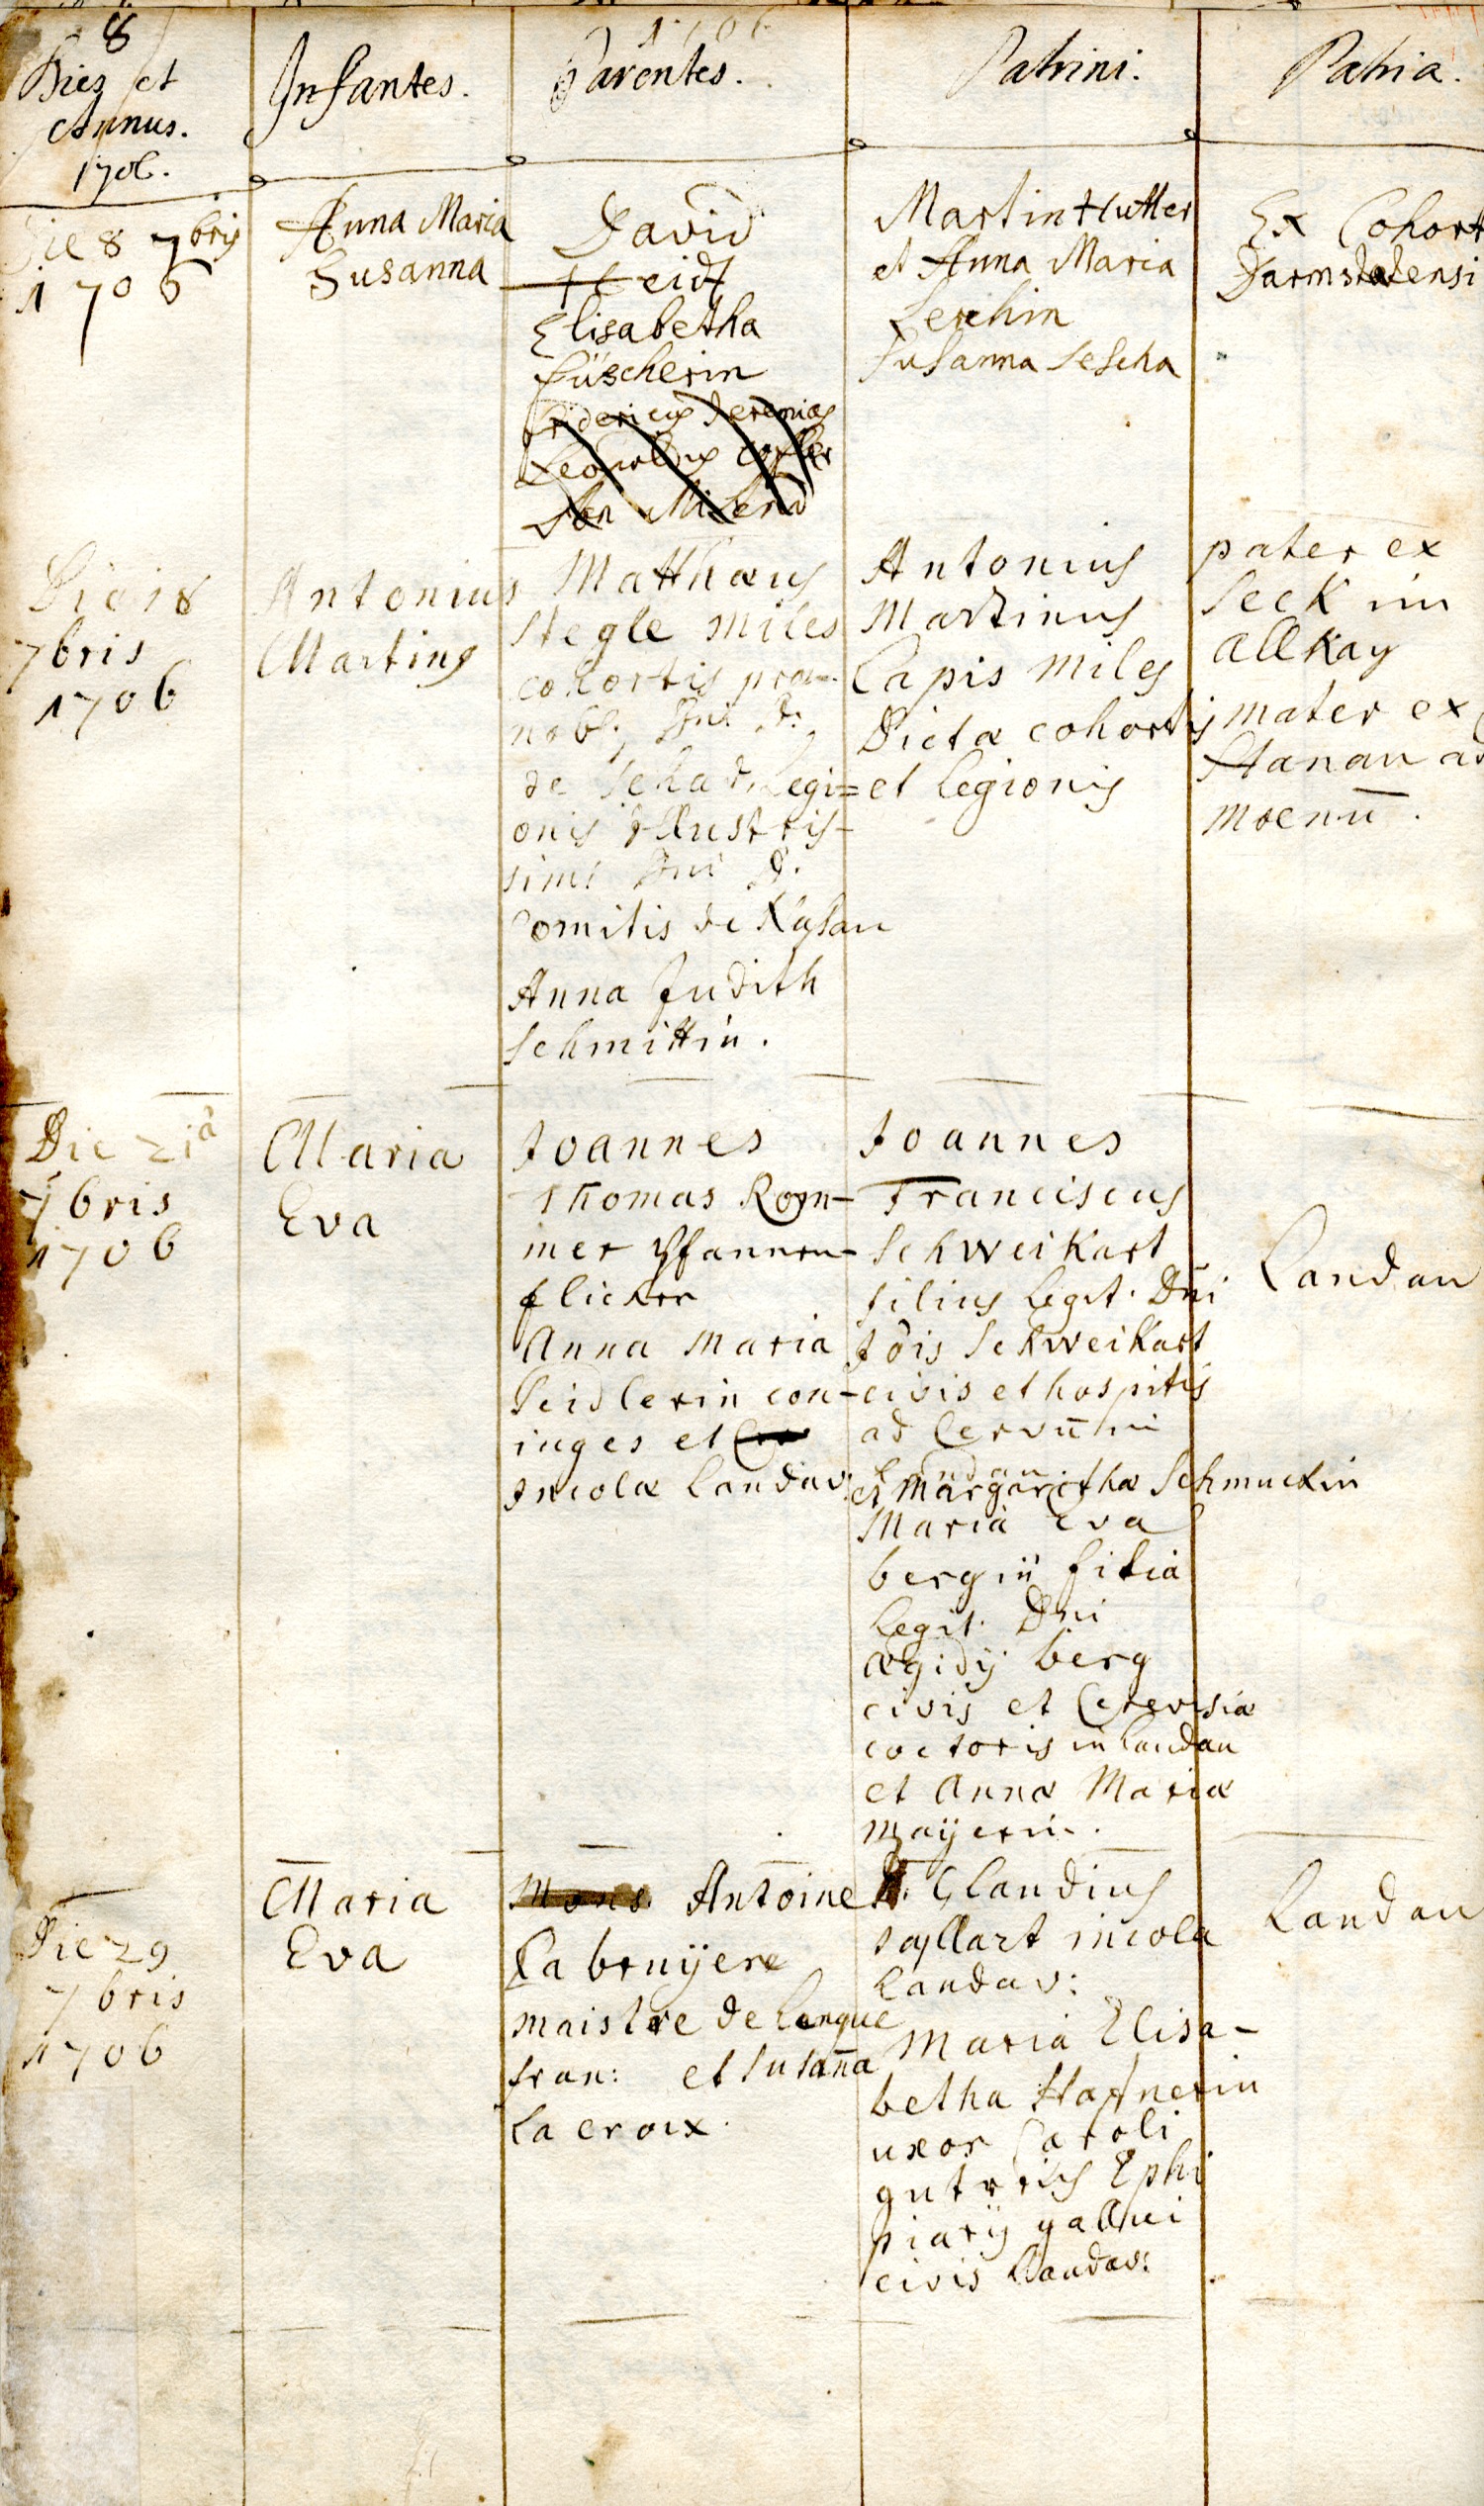 8
1706
Dies et
Annus.
1706.
Infantes.
Parentes.
Patrini.
Patria.
Die 8 7bris
1706
Anna Maria
Susanna
David
Heidt
Elisabetha
Füscherin
Fridericus Jeremias
Leopoldus
Martin Hutter
et Anna Maria
Lerchin
Susanna Lescha
Ex Cohort
Darmstatensi
Die 18
7bris
1706
Antonius
Martinus
Matthæus
Stegle miles
cohortis præ-
nob: Dni D:
de Schad, Legi=
onis Illustris-
simi Dni D.
Comitis de
Anna Judith
Schmittin.
Antonius
Martinus
Capis miles
Dictæ cohortis
et Legionis
pater ex
Seck im
Allkay
mater ex
Hanau ad
moenū.
Die 21ª
7bris
1706
Maria
Eva
Joannes
Thomas Rom-
mer Pfannen-
flicker
Anna Maria
Seidlerin con-
iuges et
Incolæ Landav:
Joannes
Franciscus
Schweikart
filius legit. Dni
Jōis Schweikart
civis et hospitis
ad Cervum in
Landau
et Margaritha Schmuckin
Maria Eva
bergin filia
legit. Dni
Ægidij berg
civis et Cerevisiæ
coctoris in Landau
et Annæ Mariæ
Mayerin.
Landau
Die 29
7bris
1706
Maria
Eva
Mons. Antoine
La bruÿere
maistre de langue
fran: et Susaña
La croix.
D. Claudius
incola
Landav:
Maria Elisa-
betha Hafnerin
uxor Caroli
Ephi
piarij gallici
civis Landav:
Landau